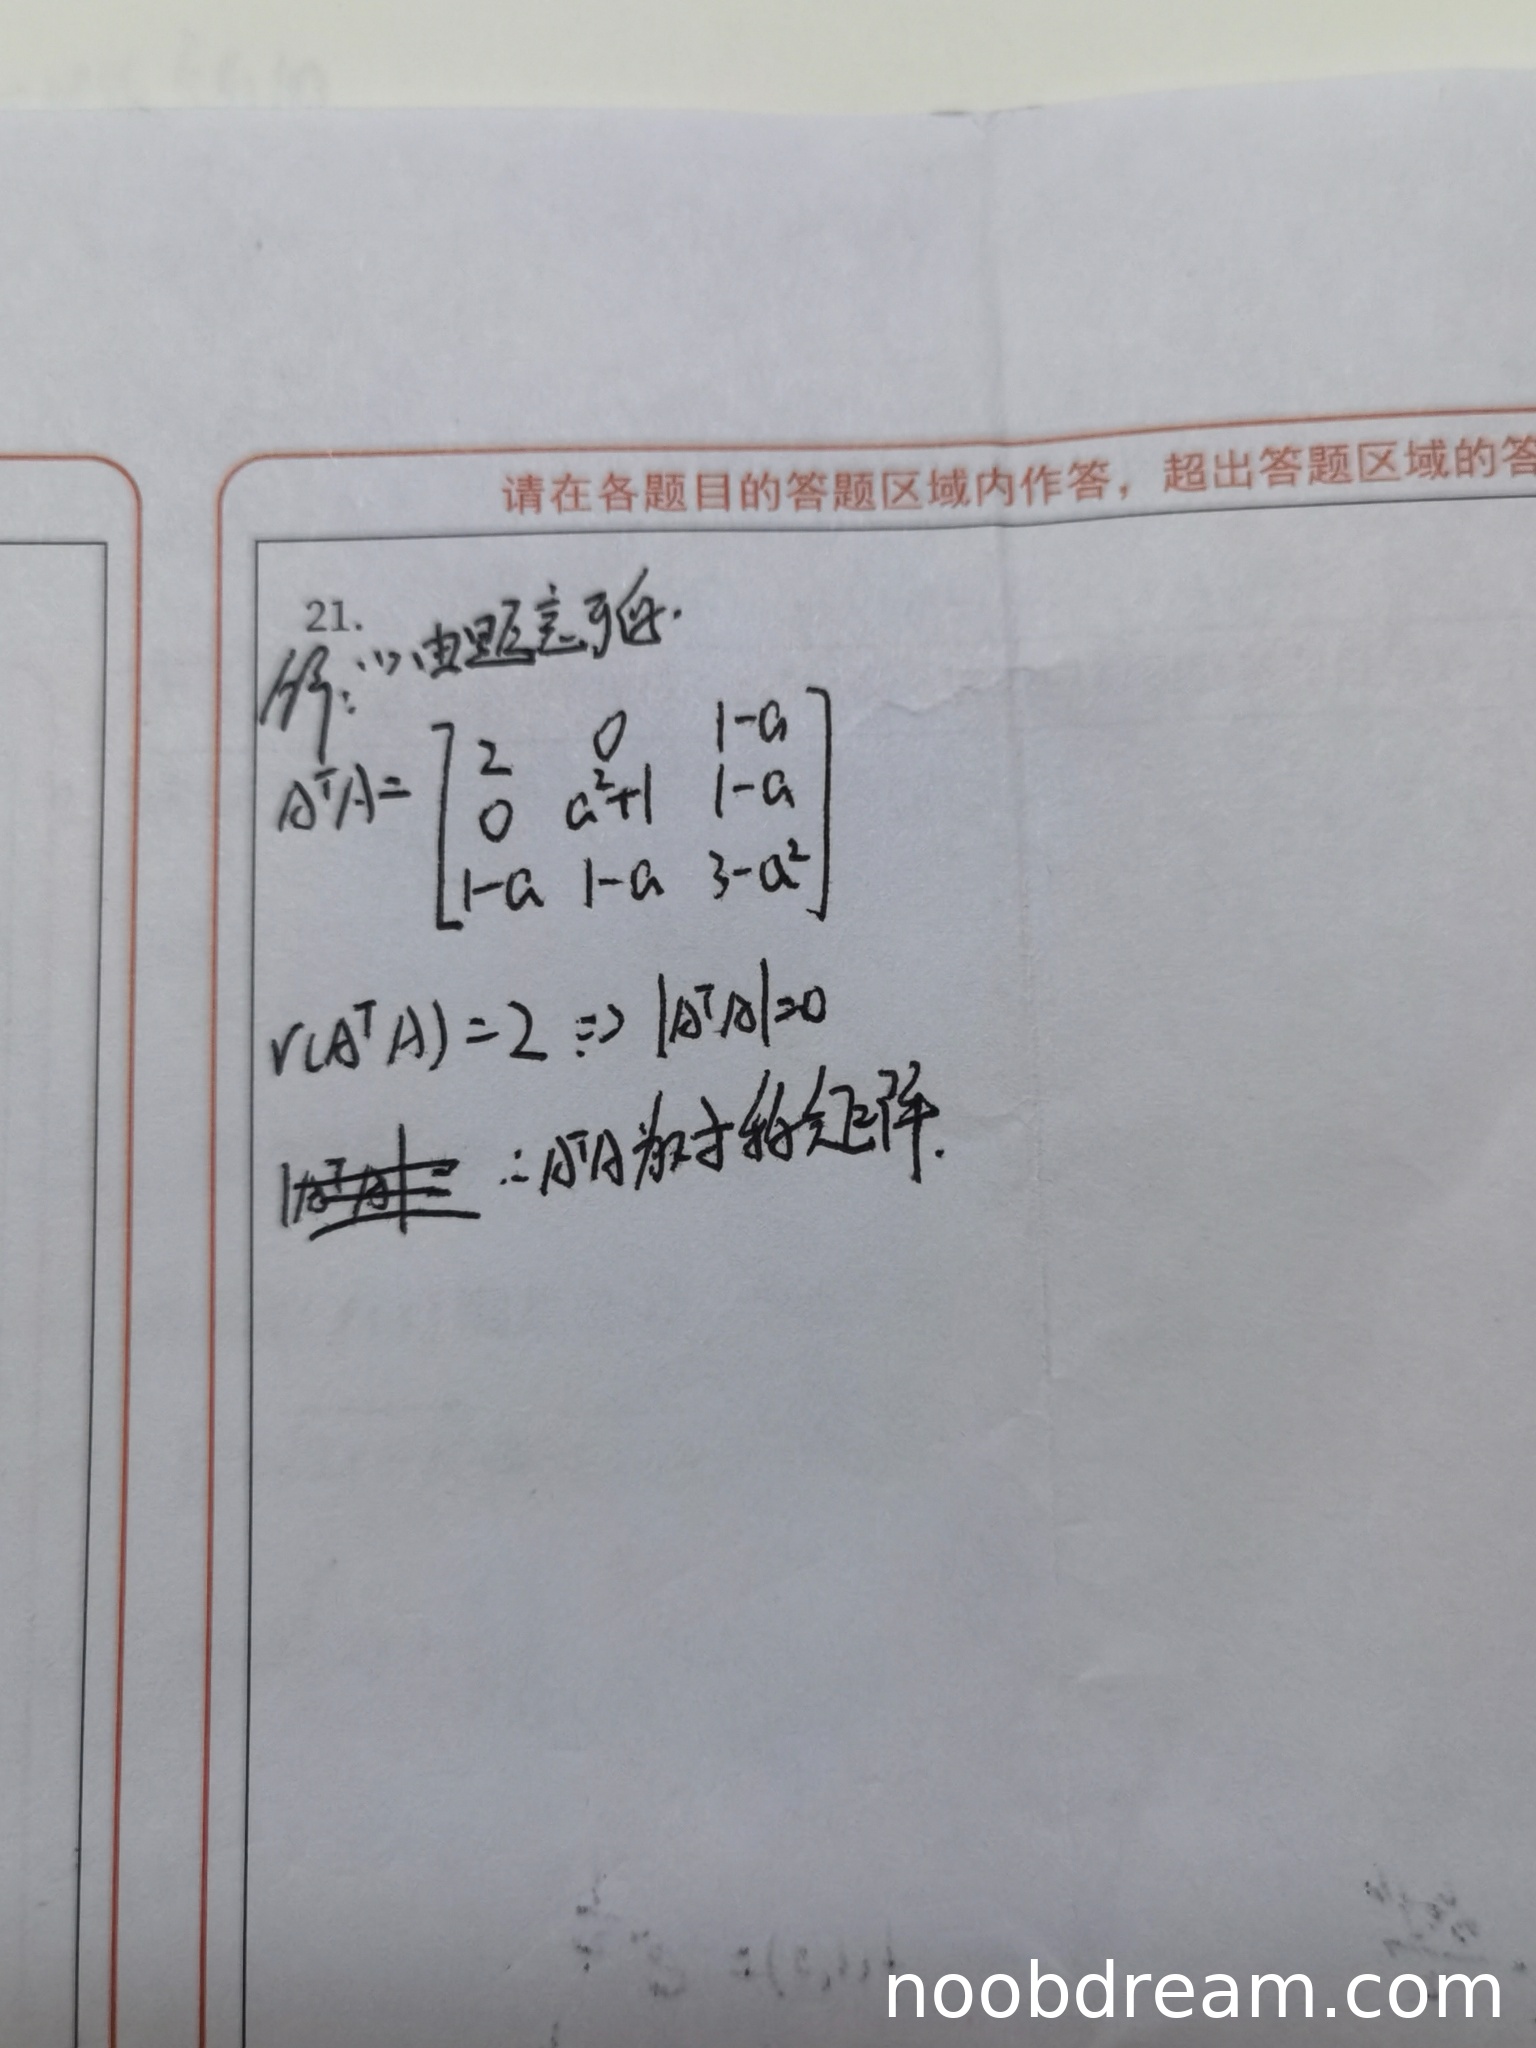 请在各题目的答题区域内作答，超出答题区域的答
21.
解：(1)、由题意可知.
AᵀA= [2 0 1-a
0 a²+1 1-a
1-a 1-a 3-a²]
r(AᵀA)=2 => |AᵀA|=0
|AᵀA|= ∴AᵀA为对称矩阵.
noobdream.com